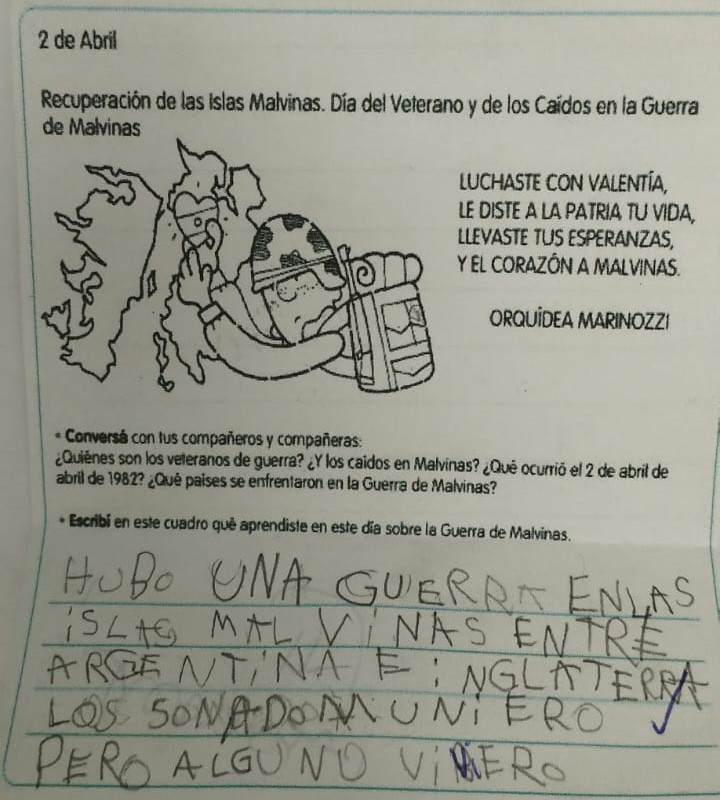 2 de Abril
Recuperación de las Islas Malvinas. Día del Veterano y de los Caídos en la Guerra
de Malvinas
LUCHASTE CON VALENTÍA,
LE DISTE A LA PATRIA TU VIDA,
LLEVASTE TUS ESPERANZAS,
Y EL CORAZÓN A MALVINAS.
ORQUÍDEA MARINOZZI
* Conversá con tus compañeros y compañeras:
¿Quiénes son los veteranos de guerra? ¿Y los caídos en Malvinas? ¿Qué ocurrió el 2 de abril de
abril de 1982? ¿Qué países se enfrentaron en la Guerra de Malvinas?
* Escribí en este cuadro qué aprendiste en este día sobre la Guerra de Malvinas.
HUBO UNA GUERRA EN LAS
ISLAS MALVINAS ENTRE
ARGENTINA E INGLATERRA
LOS SONADO MUNIERO
PERO ALGUNO VINIERO